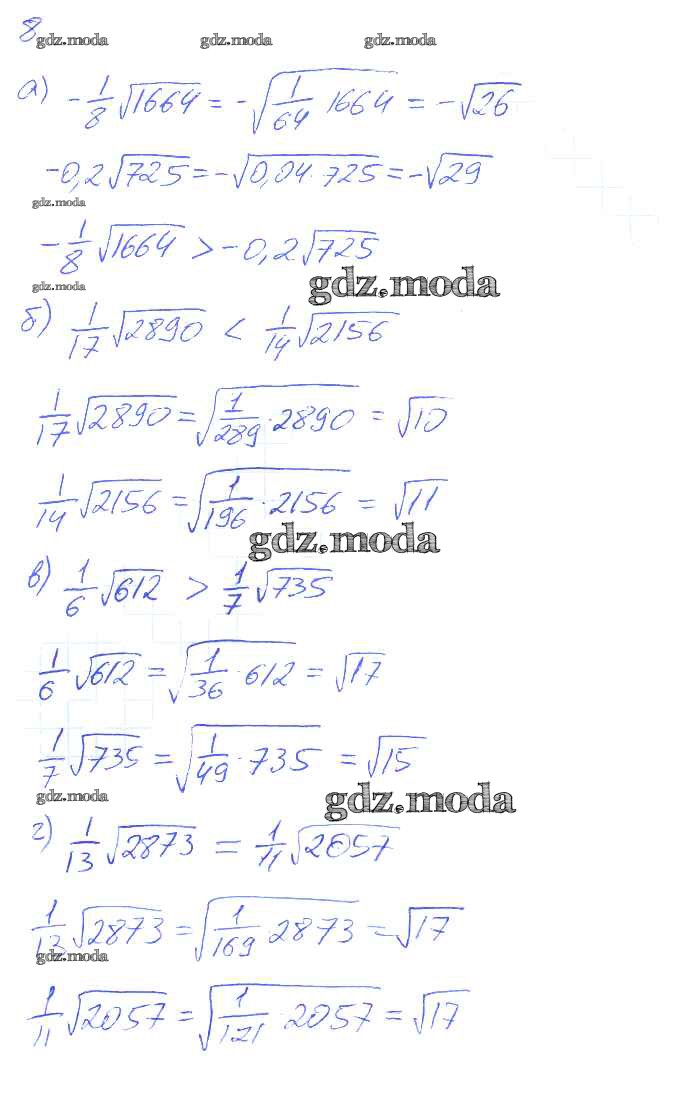 8
gdz.moda gdz.moda gdz.moda
а) -1/8 √1664 = -√(1/64 · 1664) = -√26
-0,2√725 = -√(0,04 · 725) = -√29
gdz.moda
-1/8 √1664 > -0,2√725
gdz.moda
gdz.moda
б) 1/17 √2890 < 1/14 √2156
1/17 √2890 = √(1/289 · 2890) = √10
1/14 √2156 = √(1/196 · 2156) = √11
gdz.moda
в) 1/6 √612 > 1/7 √735
1/6 √612 = √(1/36 · 612) = √17
1/7 √735 = √(1/49 · 735) = √15
gdz.moda
gdz.moda
г) 1/13 √2873 = 1/11 √2057
1/13 √2873 = √(1/169 · 2873) = √17
gdz.moda
1/11 √2057 = √(1/121 · 2057) = √17